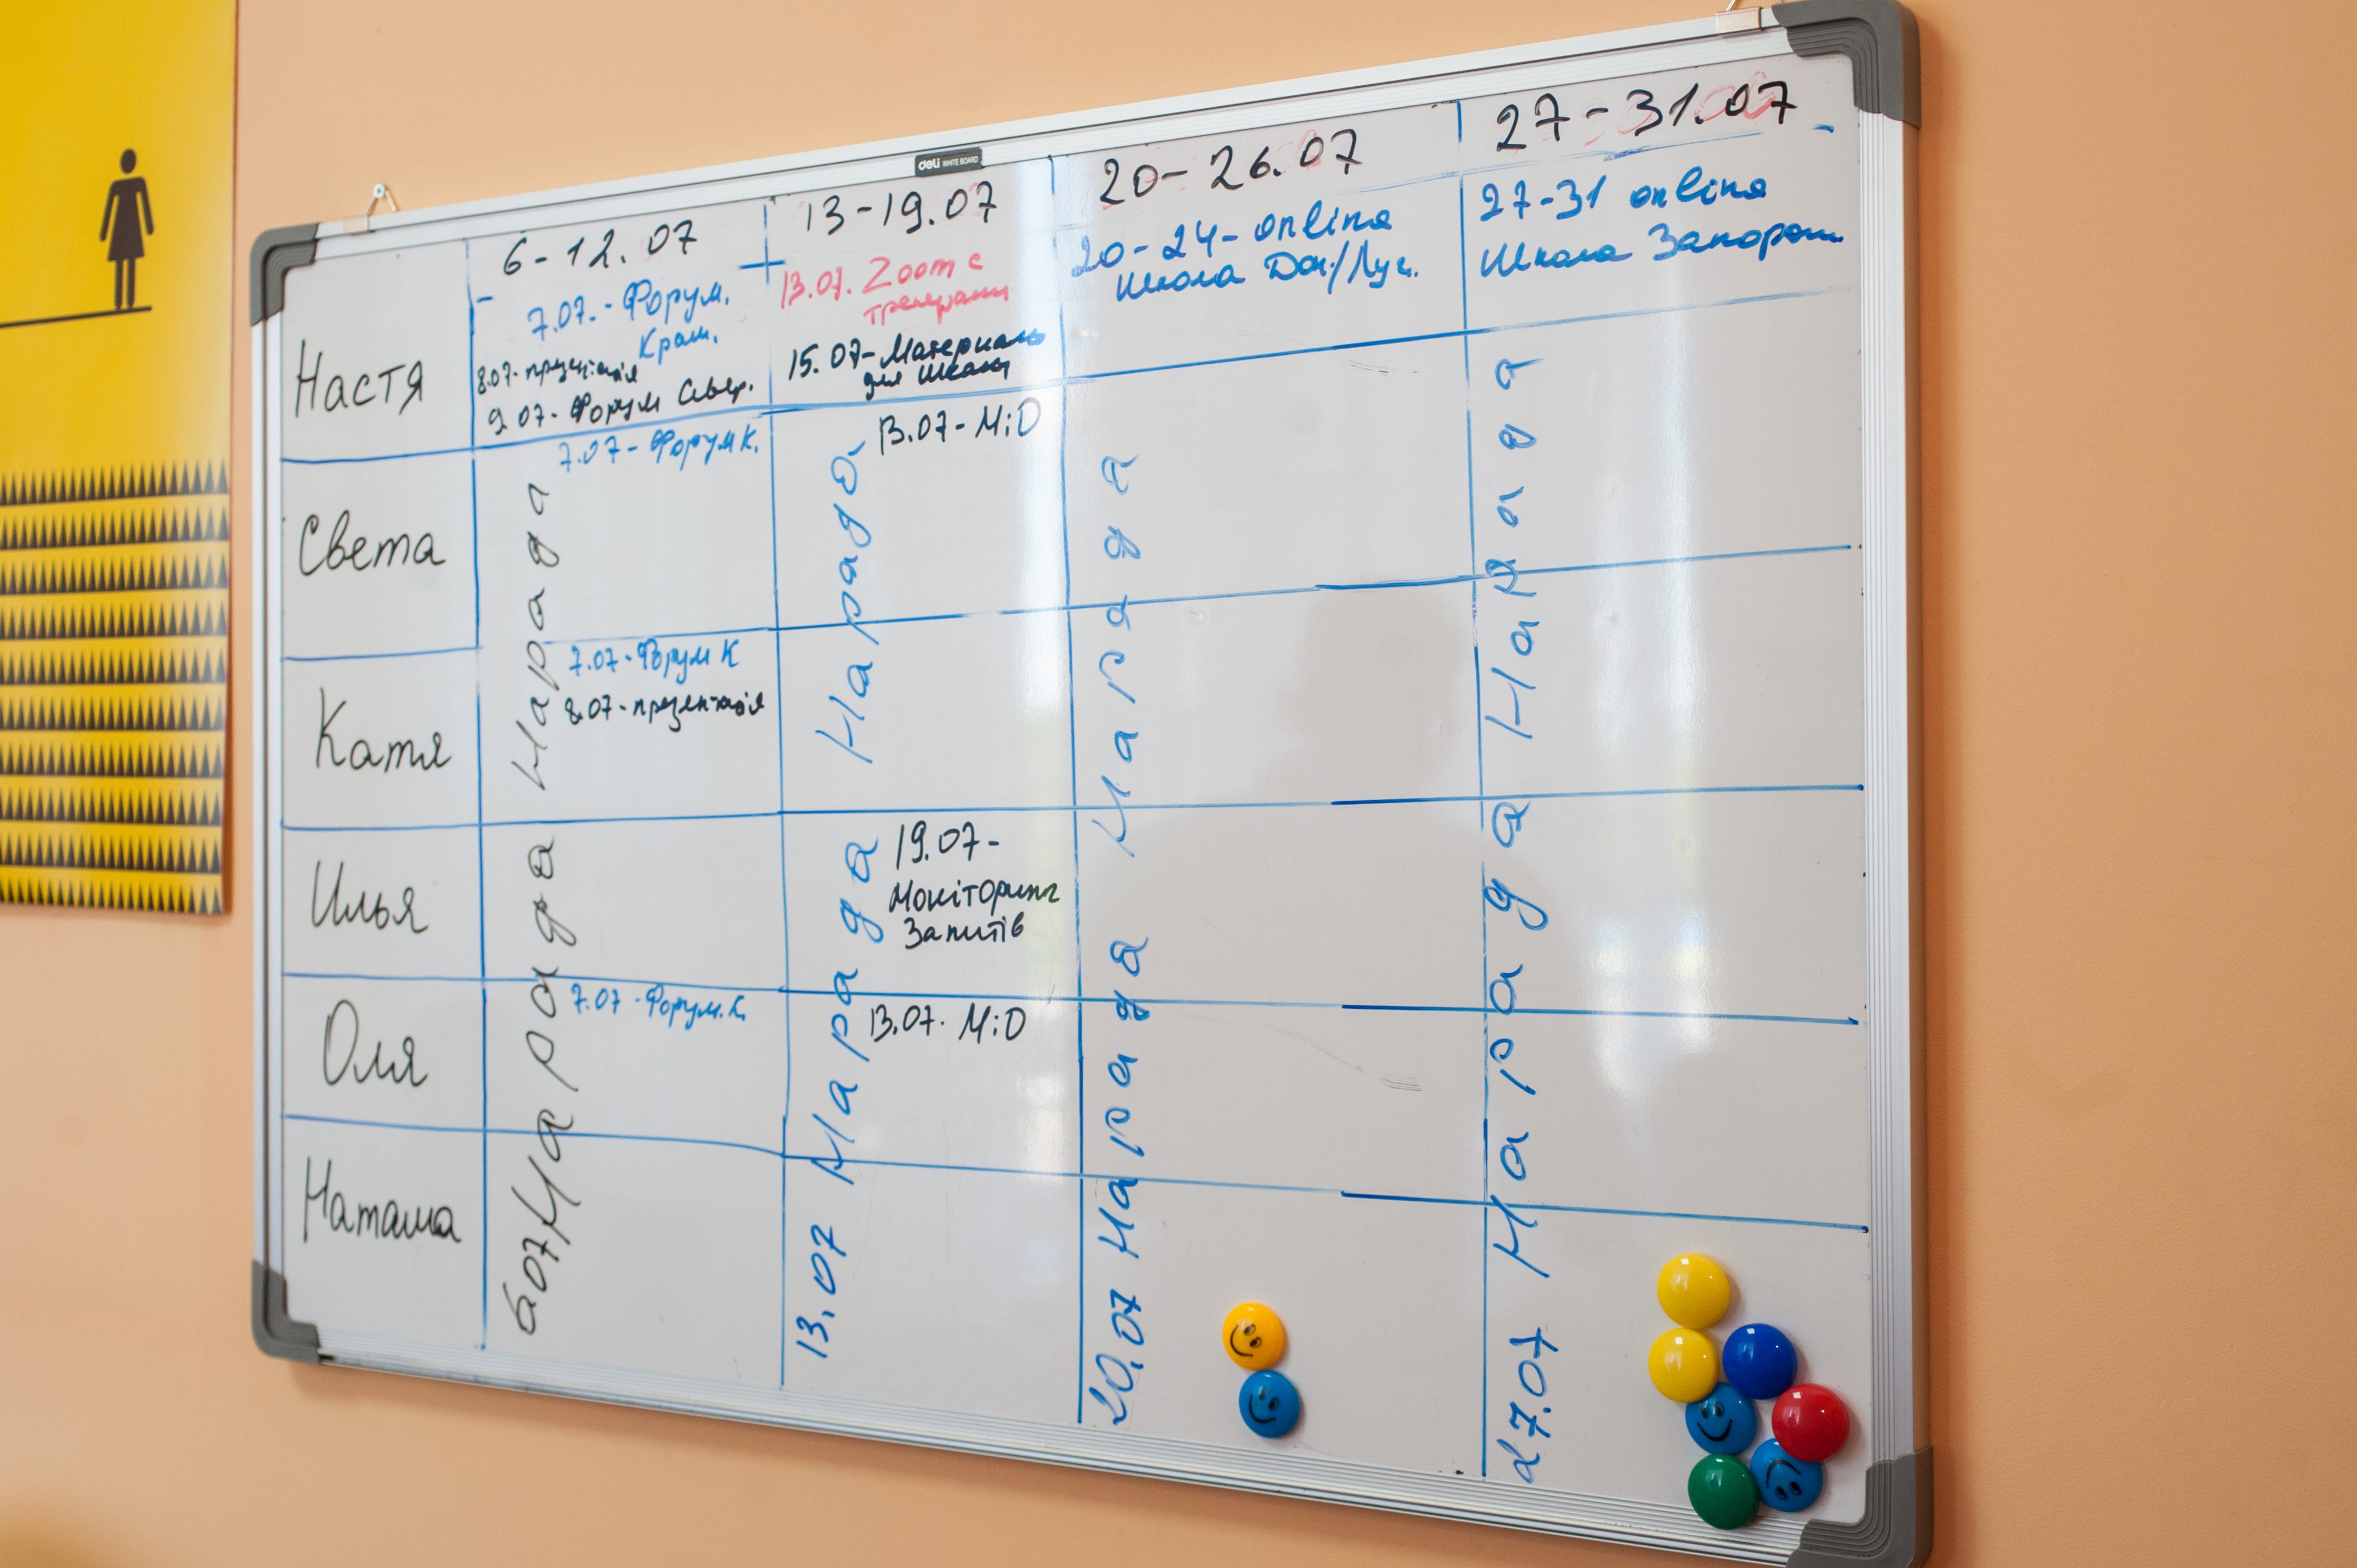 deli WHITE BOARD
6-12.07
13-19.07
20-26.07
27-31.07
Настя
7.07.-Форум.
Крам.
8.07-
9.07-Форум Сєвєр.
13.07. Zoom с
тренерами
15.07-Материалы
для школы
20-24-online
Школа Дон./Луг.
27-31 online
Школа Запорож.
Света
7.07-Форум К.
13.07-МіО
Катя
7.07-Форум К
8.07-презентація
Илья
19.07-
Моніторинг
Запитів
Оля
7.07-Форум.К
13.07. МіО
Наташа
6.07 Нарада Нарада
13.07 Нарада Нарада
20.07 Нарада Нарада
27.07 Нарада Нарада